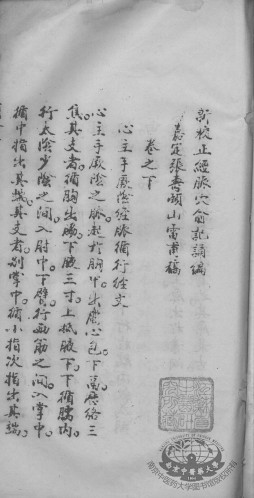 新校正經脈穴俞記誦編
嘉定張壽頤山雷甫稿
卷之下
心主手厥陰經脈循行經文
心主手厥陰之脈起於胸中出屬心包下鬲歷絡三
焦其支者循胸出脇下腋三寸上抵腋下下循臑內
行太陰少陰之間入肘中下臂行兩筋之間入掌中
循中指出其端其支者別掌中循小指次指出其端
南京中医药大学图书馆版权所有